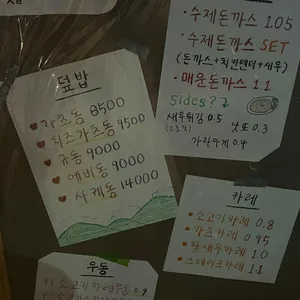 덮밥
가츠동 8500
치즈가츠동 9500
규동 9000
에비동 9000
사케동 14000
수제돈까스 1.05
수제돈까스 SET
(돈까스+치킨텐더+새우)
매운돈까스 1.1
Sides??
새우튀김 0.5
낫또 0.3
가라아게 0.4
카레
소고기카레 0.8
가츠카레 0.95
왕새우카레 1.0
스테이크카레 1.1
우동
소고기카레우동 0.9